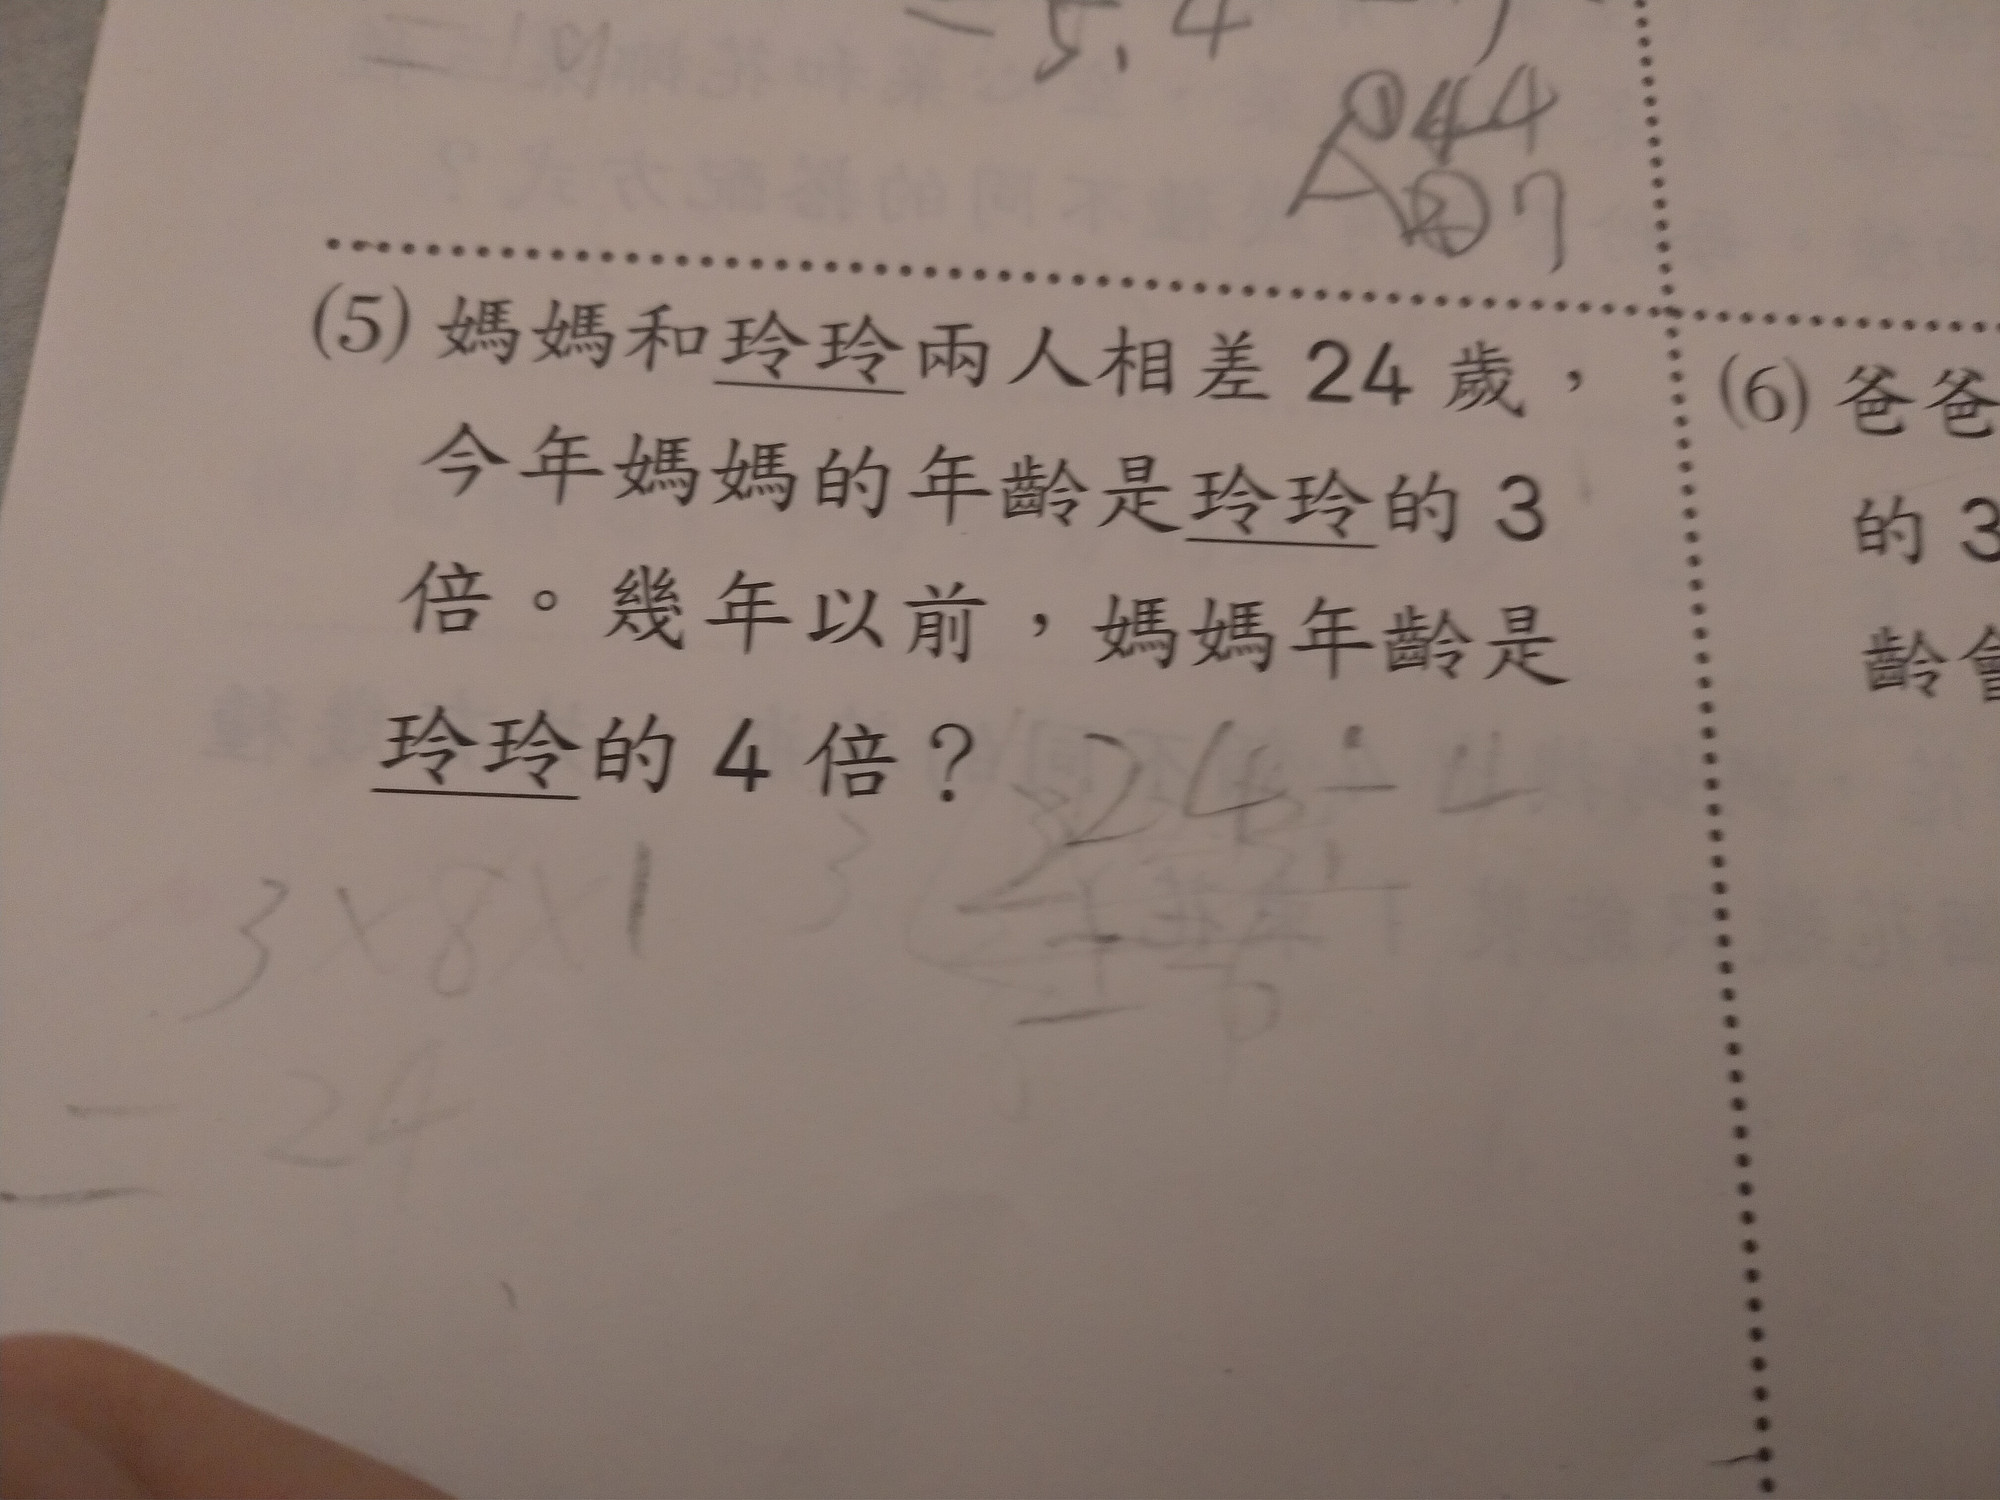 = 5.4
①44
A②7
(5) 媽媽和玲玲兩人相差 24 歲，
今年媽媽的年齡是玲玲的 3
倍。幾年以前，媽媽年齡是
玲玲的 4 倍？
24÷4
3×8×1
= 24
(6) 爸爸
的 3
齡會